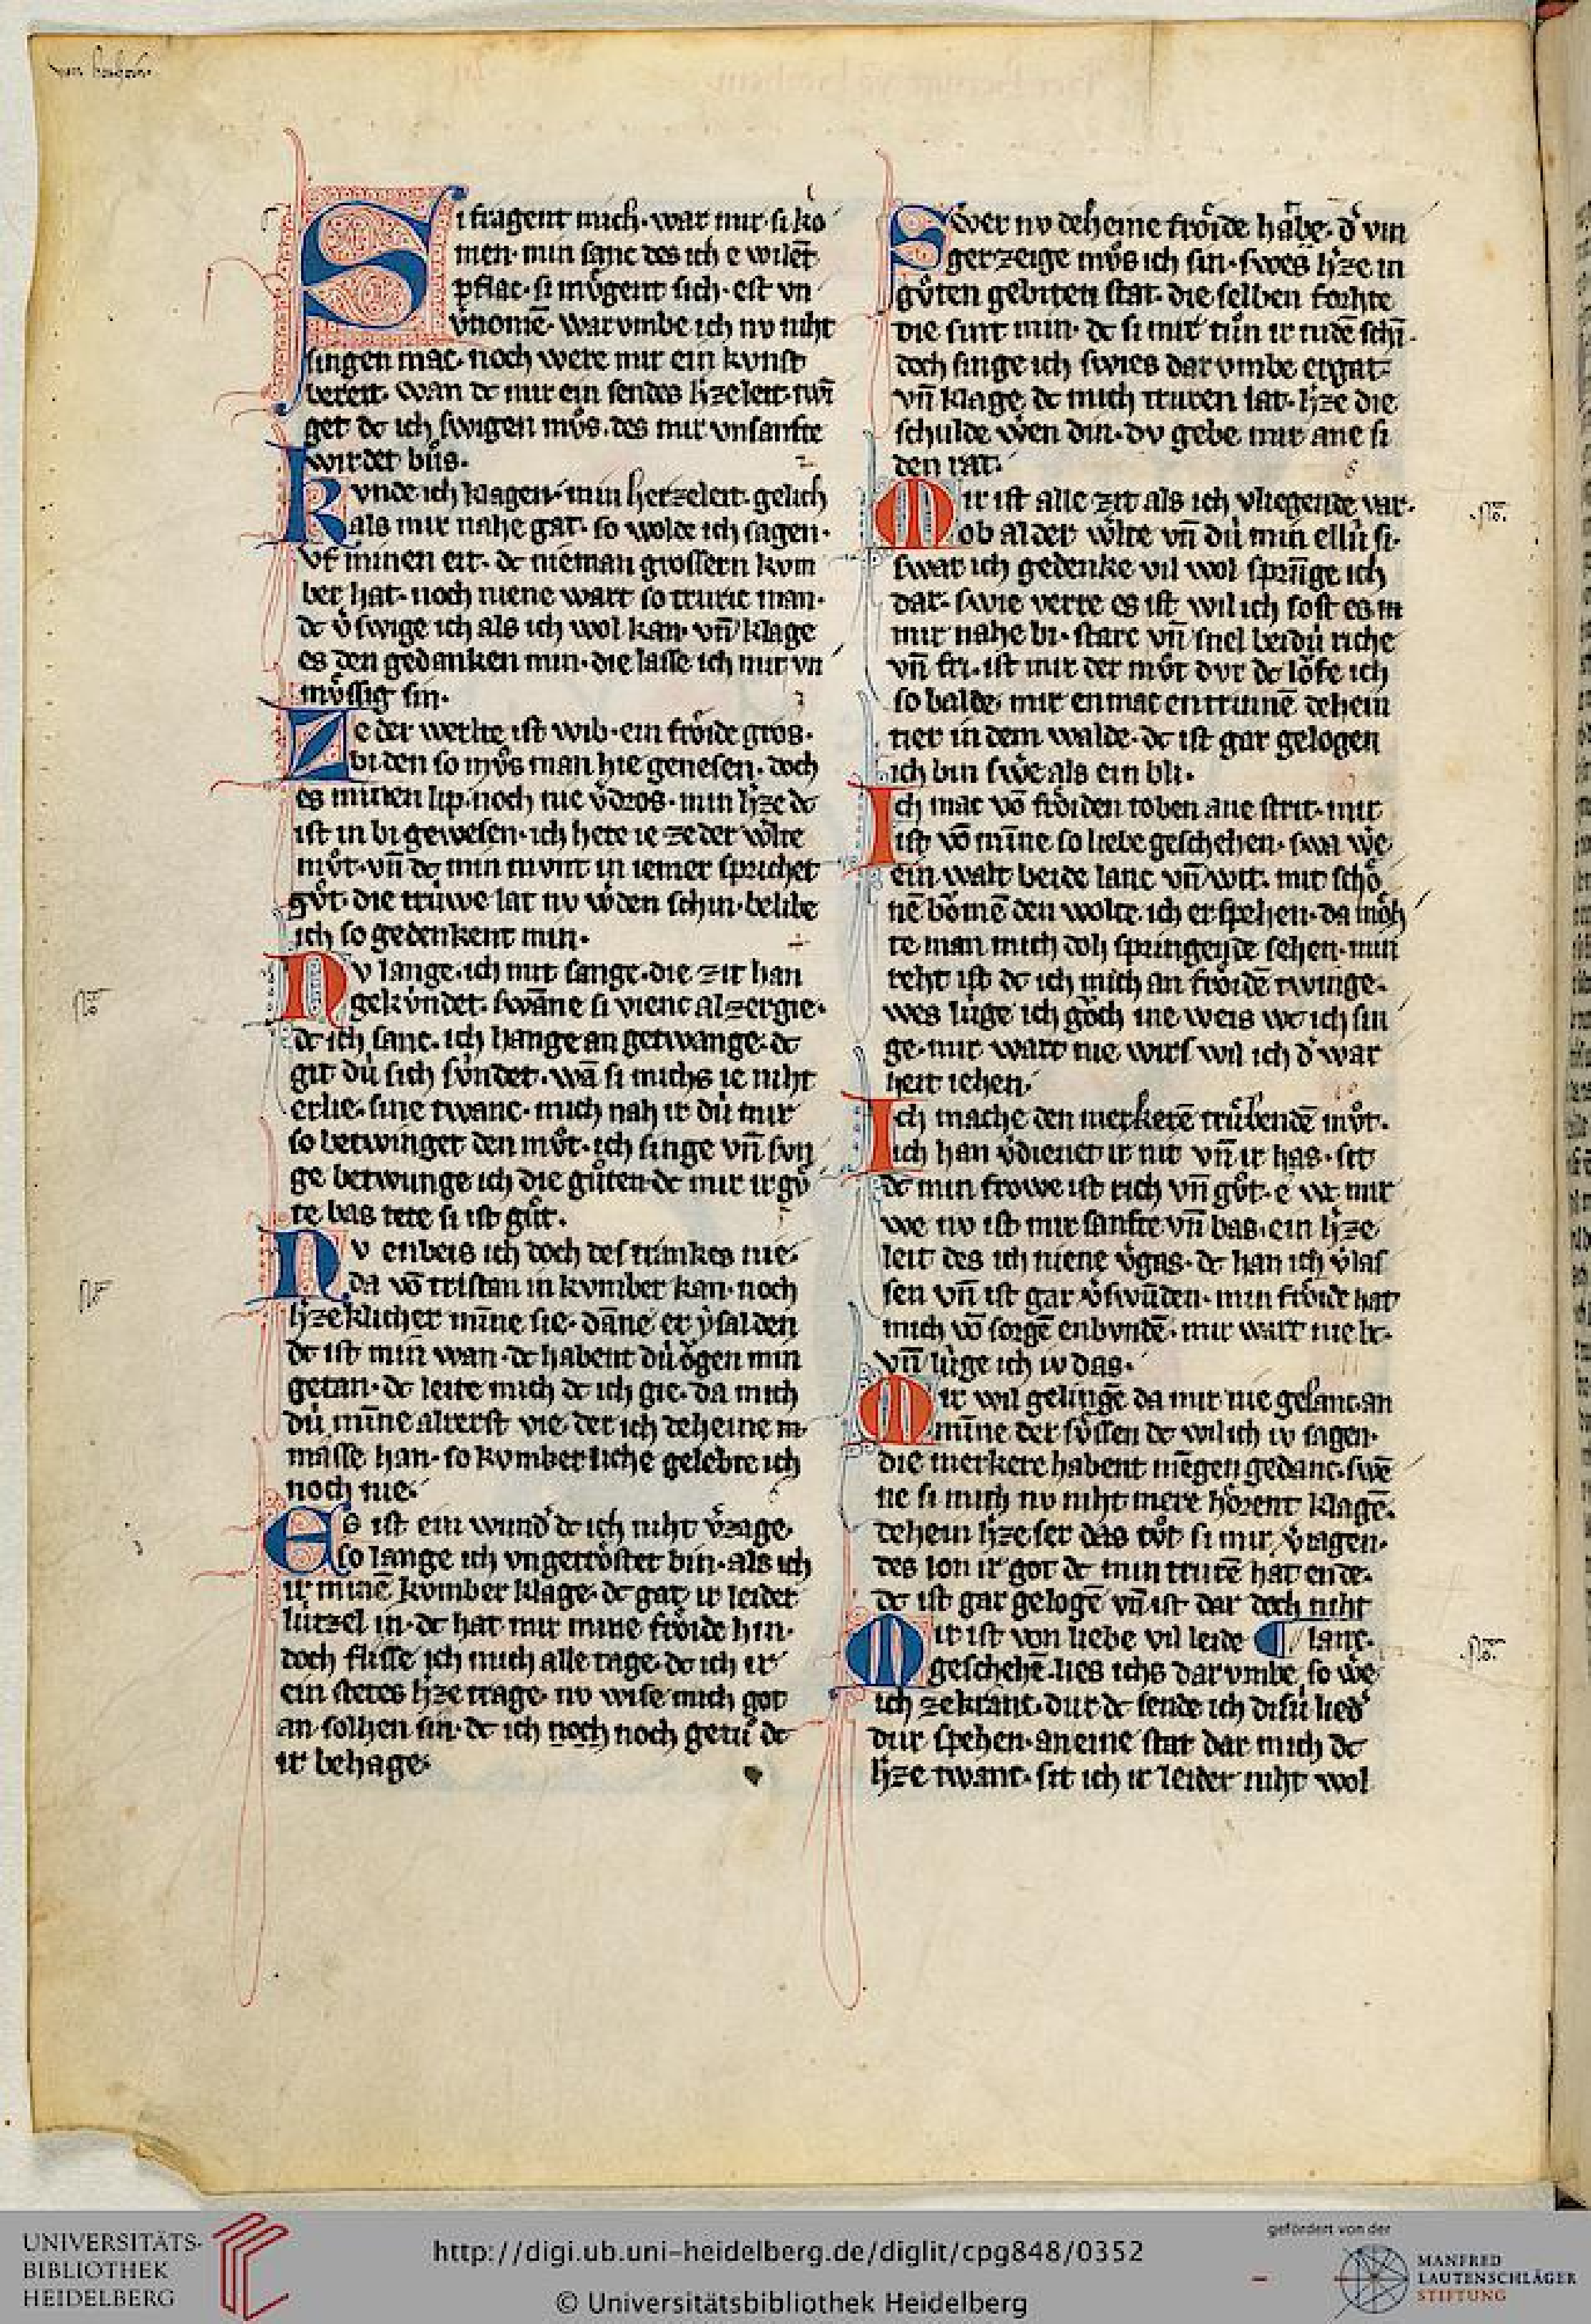 Si fragent mich· war mir· si ko
men· min sanc des ich e wilēt
pflac· si mv̊gent sich· est vn
v̓nomē· war vmbe ich nv niht
singen mac· noch were mir ein kvnst
bereit· wan dc mir ein sendes h̓ze leit· twī
get dc ich swigen mv̊s· des mir vnsanfte
wirdet bůs·
Kvnde ich klagen· min herzeleit· gelich
als mir nahe gat· so wolde ich sagen·
vf minen eit· dc nieman grossern kvm
ber hat· noch niene wart so truric man·
dc v̓swige ich als ich wol kan· vn̄ klage
es den gedanken min· die lasse ich mir vn
mv̊ssig sin·
Ze der werlte ist wib· ein frȯide gros·
bi den so mv̊s man hie genesen· doch
es minen lip· noch nie v̓dros· min h̓ze dc
ist in bi gewesen· ich hete ie ze der w̓lte
mv̊t· vn̄ dc min mvnt in iemer sprichet
gv̊t· die trúwe lat nv w̓den schin· belibe
ich so gedenkent min·
Nv lange· ich mit sange· die zit han
gekv́ndet· swāne si vienc al zergie·
dc ich sanc· ich hange an getwange· dc
git dú sich sv́ndet· wā si michs ie niht
erlie· sine twanc· mich nah ir dú mir
so betwinget den mv̊t· ich singe vn̄ svn
ge betwunge ich die gůten· dc mir ir gv̊
te bas tete si ist gůt·
Nv enbeis ich doch des trankes nie·
da vō tristan in kvmber kan· noch
h̓zeklicher mīne sie· dāne er v̓salden
dc ist min wan· dc habent dú ȯgen min
getan· dc leite mich dc ich gie· da mich
dú mīne alterst vie· der ich deheine m
masse han· so kvmberliche gelebte ich
noch nie·
Es ist ein wund̓ dc ich niht v̓zage·
so lange ich vngetrȯstet bin· als ich
ir minē kvmber klage· dc gat ir leider
lútzel in· dc hat mir mine frȯide hin·
doch flisse ich mich alle tage· dc ich ir
ein stetes h̓ze trage· nv wise mich got
an solhen sin· dc ich noch noch getů dc
ir behage·
Swer nv deheine frȯide habe· d̓ vin
ger zeige mv̊s ich sin· swes h̓ze in
gůten gebiten stat· die selben forhte
die sint min· dc si mir tůn ir niden schī·
doch singe ich swies dar vmbe ergat·
vn̄ klage dc mich truren lat· h̓ze die
schulde wen din· dv gebe mir ane si
den rat·
Mir ist alle zit als ich vliegende var·
ob al der w̓lte vn̄ dú min ellú si·
swar ich gedenke vil wol sprīnge ich
dar· swie verre es ist wil ich sost es m
mir nahe bi· starc vn̄ snel beidú riche
vn̄ fri· ist mir der mv̊t dvr dc lȯfe ich
so balde· mir enmac entrinnē dehein
tier in dem walde· dc ist gar gelogen
ich bin sw̓e als ein bli·
Ich mac vō frȯiden toben ane strit· mir
ist vō mīne so liebe geschehen· swa we̓
ein walt beide lanc vn̄ wit· mit schȯ
nē bȯmē den wolte ich erspehen· da mȯh
te man mich doh springende sehen· min
reht ist dc ich mich an frȯidē twinge·
wes lúge ich gȯch ine weis wc ich sin
ge· mir wart nie wirs wil ich d̓ war
heit iehen·
Ich mache den merkerē trůbendē mv̊t·
ich han v̓dienet ir nit vn̄ ir has· sit
dc min frowe ist rich vn̄ gůt· e wc mir
we nv ist mir sanfte vn̄ bas· ein h̓ze
leit des ich niene v̓gas· dc han ich v̓las
sen vn̄ ist gar v̓swūden· min frȯide hat
mich vō sorgē enbvndē· mir wart nie bc·
vn̄ lúge ich iv das·
Mir wil gelingē da mir nie gelanc· an
mīne der sv̊ssen dc wil ich iv sagen·
die merkere habent mēgen gedanc· swē
ne si mich nv niht mere hȯrent klagē·
dehein h̓ze ser das tůt si mir v̓tragen·
des lon ir got dc min trurē hat ende·
dc ist gar gelogē vn̄ ist dar doch niht
Mir ist von liebe vil leide ¶ lanc·
geschehē· lies ichs dar vmbe so we̓
ich ze kranc· dur dc sende ich disú lied̓
dur spehen· an eine stat dar mich dc
h̓ze twanc· sit ich ir leider niht wol
UNIVERSITÄTS-
BIBLIOTHEK
HEIDELBERG
http://digi.ub.uni-heidelberg.de/diglit/cpg848/0352
© Universitätsbibliothek Heidelberg
gefördert von der
MANFRED
LAUTENSCHLÄGER
STIFTUNG